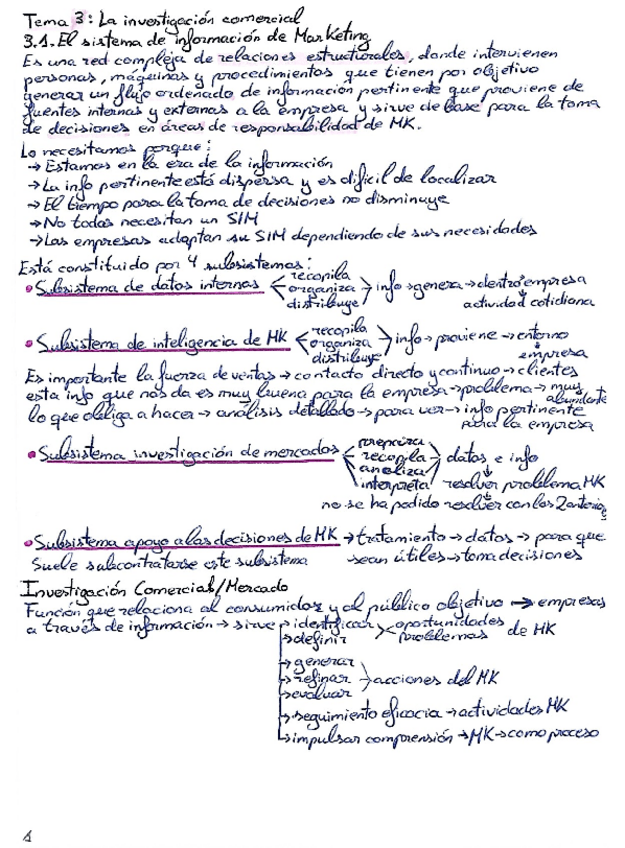 Tema 3: La investigación comercial
3.1. El sistema de información de Marketing
Es una red compleja de relaciones estructurales, donde intervienen
personas, máquinas y procedimientos que tienen por objetivo
generar un flujo ordenado de información pertinente que proviene de
fuentes internas y externas a la empresa y sirve de base para la toma
de decisiones en áreas de responsabilidad de MK.
Lo necesitamos porque:
→ Estamos en la era de la información
→ La info pertinente está dispersa y es difícil de localizar
→ El tiempo para la toma de decisiones no disminuye
→ No todos necesitan un SIM
→ Las empresas adaptan su SIM dependiendo de sus necesidades
Está constituido por 4 subsistemas:
• Subsistema de datos internos < recopila organiza distribuye > info → genera → dentro empresa
actividad cotidiana
• Subsistema de inteligencia de MK < recopila organiza distribuye > info → proviene → entorno
empresa
Es importante la fuerza de ventas → contacto directo y continuo → clientes
esta info que nos da es muy buena para la empresa → problema → muy abundante
lo que obliga a hacer → análisis detallado → para ver → info pertinente
para la empresa
• Subsistema investigación de mercados < prepara recopila analiza interpreta > datos e info
↓ resolver problema MK
no se ha podido resolver con los 2 anteriores
• Subsistema apoyo a las decisiones de MK → tratamiento → datos → para que
Suele subcontratarse este subsistema sean útiles → toma decisiones
Investigación Comercial/Mercado
Función que relaciona al consumidor y al público objetivo → empresas
a través de información → sirve → identificar
→ definir > oportunidades problemas de MK
→ generar
→ refinar > acciones del MK
→ evaluar
→ seguimiento eficacia → actividades MK
→ impulsar comprensión → MK → como proceso